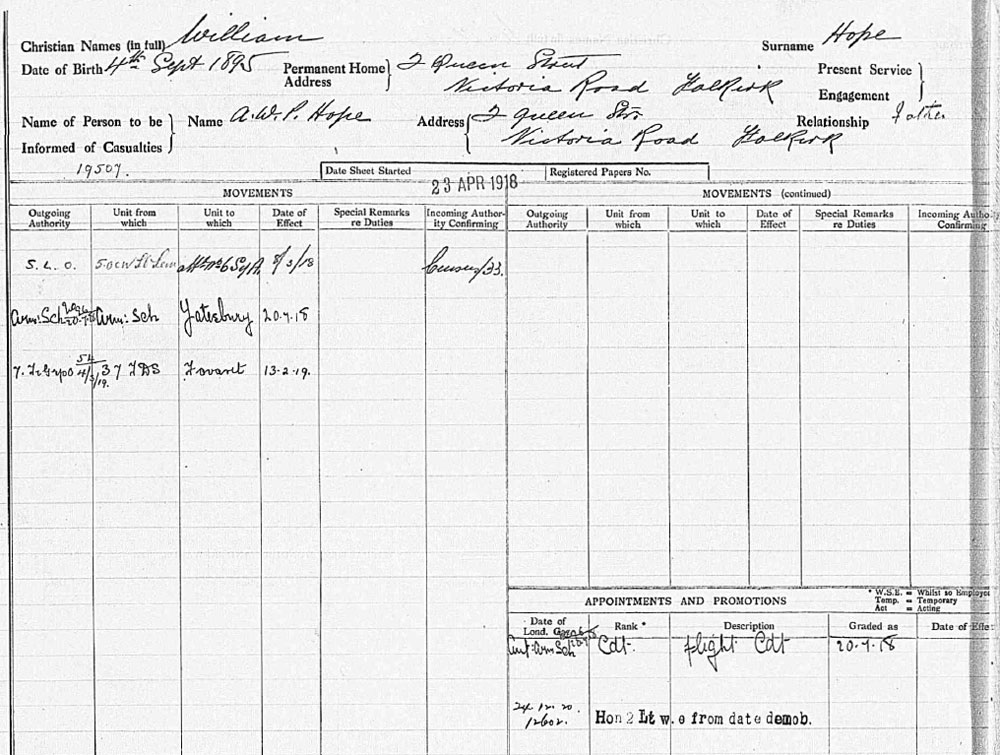 Christian Names (in full) William Surname Hope
Date of Birth 4th Sept 1895 Permanent Home Address 2 Queen Street Present Service
Victoria Road Falkirk Engagement
Name of Person to be Informed of Casualties Name A.W.P. Hope Address 2 Queen Str. Relationship Father
Victoria Road Falkirk
19507.
Date Sheet Started 23 APR 1918 Registered Papers No.
MOVEMENTS MOVEMENTS (continued)
Outgoing Authority Unit from which Unit to which Date of Effect Special Remarks re Duties Incoming Authority Confirming Outgoing Authority Unit from which Unit to which Date of Effect Special Remarks re Duties Incoming Confirming
S. L. O. /3/18 Census/33.
Arm: Sch 20.7.18 Arm: Sch Yatesbury 20.7.18
54 4/3/19. 37 TDS Fovant 13-2-19.
* W.S.E. = Whilst so Employe
Temp. = Temporary
Act = Acting
APPOINTMENTS AND PROMOTIONS
Date of Lond. Rank * Description Graded as Date of
Arm Sch Cdt. flight Cdt 20.7.18
24.12.20.
12602. Hon 2 Lt w.e from date demob.